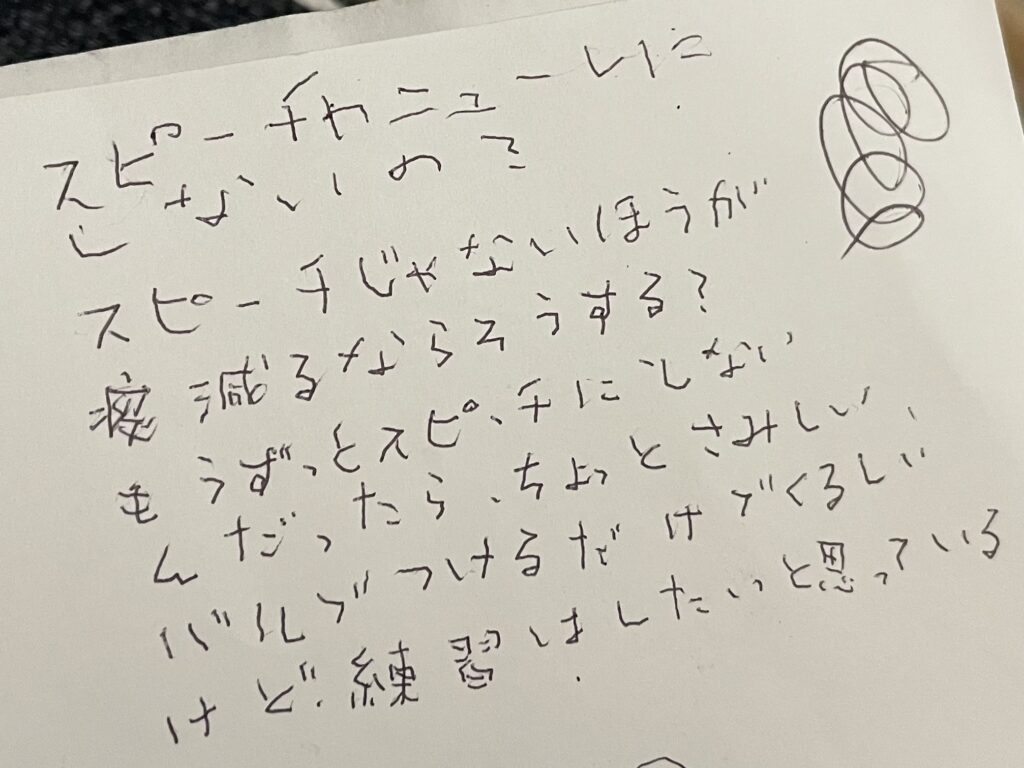 スピーチャニューレに
しないので
スピーチじゃないほうが
痰減るならそうする?
もうずっとスピーチにしない
んだったら、ちょっとさみしい、
バルブつけるだけでくるしい
けど、練習はしたいっと思っている